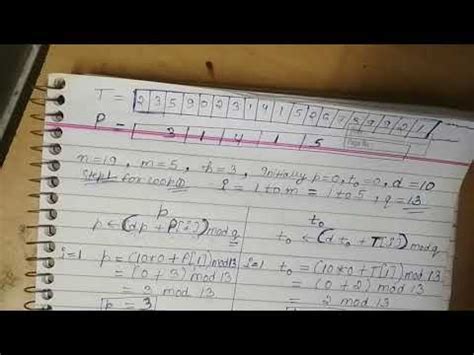 T = 2 3 5 9 0 2 3 1 4 1 5 2 6 7 3 9 9 2 1
P = 3 1 4 1 5
n=19, m=5, h=3, Initially p=0, t₀=0, d=10
Step1 for loop i = 1 to m = 1 to 5, q=13
p
t₀
p ← (dp + P[i]) mod q
t₀ ← (dt₀ + T[i]) mod q
i=1 p = (10×0 + P[1]) mod 13
= (0 + 3) mod 13
= 3 mod 13
p = 3
i=1 t₀ = (10×0 + T[1]) mod 13
= (0 + 2) mod 13
= 2 mod 13